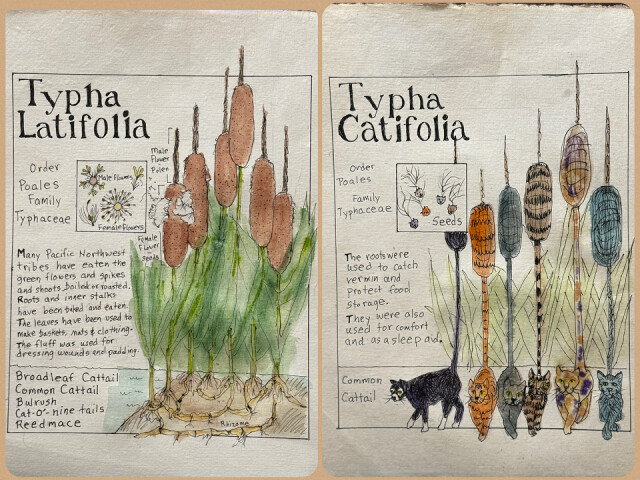 Typha
Latifolia
Order
Poales
Family
Typhaceae
Male Flowers
Female Flowers
Male
Flower
Piler
Female
Flower
&
Seeds
Many Pacific Northwest
tribes have eaten the
green flowers and spikes
and shoots, boiled or roasted.
Roots and inner stalks
have been baked and eaten.
The leaves have been used to
make baskets, mats & clothing.
The fluff was used for
dressing wounds and padding.
Broadleaf Cattail
Common Cattail
Bulrush
Cat-O'-nine tails
Reedmace
Rhizome
Typha
Catifolia
Order
Poales
Family
Typhaceae
Seeds
The roots were
used to catch
vermin and
protect food
storage.
They were also
used for comfort
and as a sleep aid.
Common
Cattail